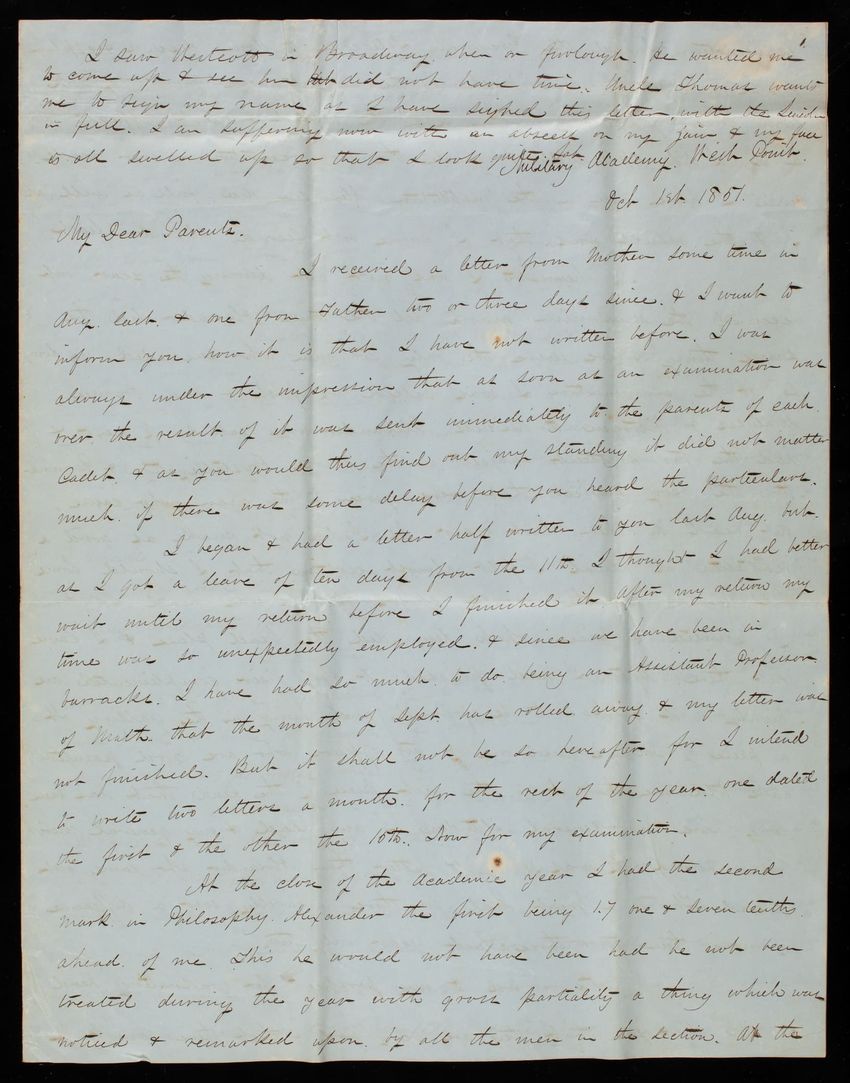 I saw Westcott in Broadway when on furlough. He wanted me
to come up & see him but did not have time. Uncle Thomas wants
me to sign my name as I have signed this letter, with the
in full. I am suffering now with an abscess on my jaw & my face
is all swelled up so that I look quite fat
Military Academy, West Point.
Oct 1st. 1851.
My Dear Parents.
I received a letter from Mother some time in
Aug. last, & one from Father two or three days since. & I want to
inform you how it is that I have not written before. I was
always under the impression that as soon as an examination was
over the result of it was sent immediately to the parents of each
Cadet, & as you would thus find out my standing it did not matter
much if there was some delay before you heard the particulars.
I began & had a letter half written to you last Aug. but
as I got a leave of ten days from the 11th. I thought I had better
wait until my return before I finished it. After my return my
time was so unexpectedly employed. & since we have been in
barracks. I have had so much to do being an Assistant Professor
of Math. that the month of Sept has rolled away & my letter was
not finished. But it shall not be so hereafter for I intend
to write two letters a month. for the rest of the year. one dated
the first & the other the 10th. Now for my examination.
At the close of the Academic year I had the second
mark in Philosophy. Alexander the first being 1.7 one & seven tenths
ahead of me. This he would not have been had he not been
treated during the year with gross partiality a thing which was
noticed & remarked upon by all the men in the section. At the